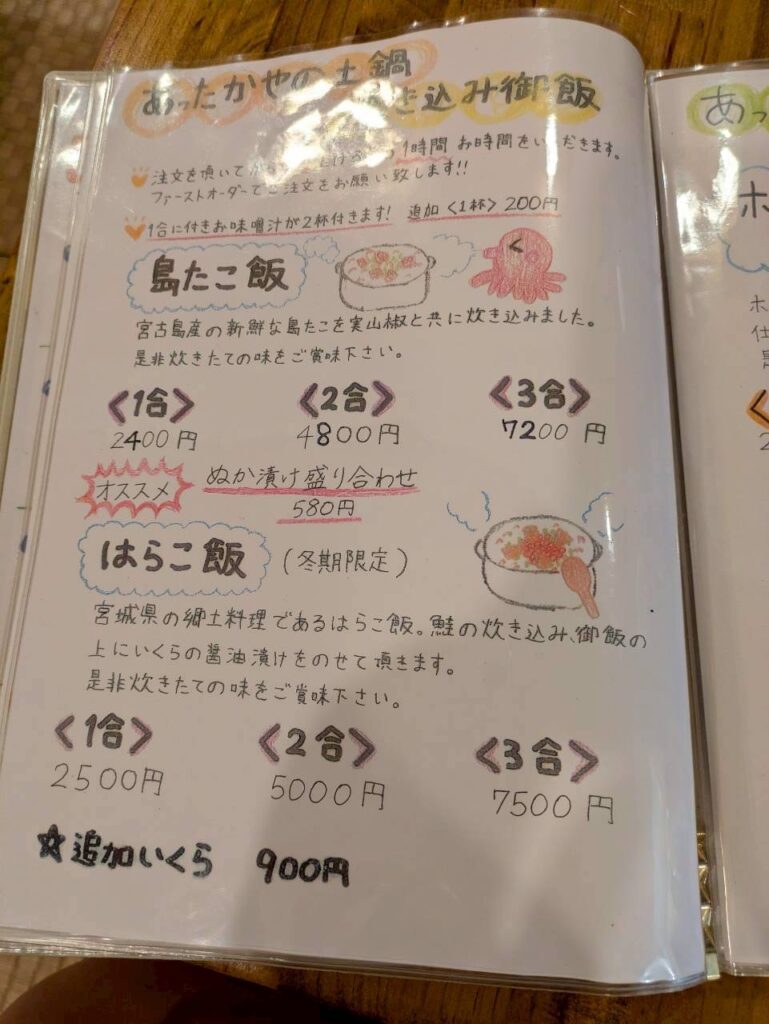 あったかやの土鍋
炊き込み御飯
注文を頂いてから 1時間 お時間をいただきます。
ファーストオーダーでご注文をお願い致します!!
1合に付きお味噌汁が2杯付きます! 追加〈1杯〉200円
島たこ飯
宮古島産の新鮮な島たこを実山椒と共に炊き込みました。
是非炊きたての味をご賞味下さい。
〈1合〉 〈2合〉 〈3合〉
2400円 4800円 7200円
オススメ ぬか漬け盛り合わせ
580円
はらこ飯 (冬期限定)
宮城県の郷土料理であるはらこ飯。鮭の炊き込み、御飯の
上にいくらの醤油漬けをのせて頂きます。
是非炊きたての味をご賞味下さい。
〈1合〉 〈2合〉 〈3合〉
2500円 5000円 7500円
☆追加いくら 900円
あっ
ホ
ホ
仕